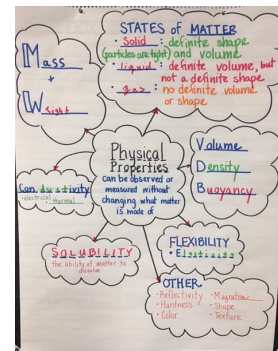 STATES OF MATTER
· Solid : definite shape
(particles are tight) and volume
· liquid : definite volume, but
not a definite shape
· gas : no definite volume
or shape
Mass
+
Weight
Physical
Properties
can be observed or
measured without
changing what matter
is made of
Volume
Density
Buoyancy
Conductivity
· electrical
· thermal
SOLUBILITY
the ability of matter to
dissolve
FLEXIBILITY
+ Elasticity
OTHER
· Reflectivity · Magnetism
· Hardness · Shape
· Color · Texture